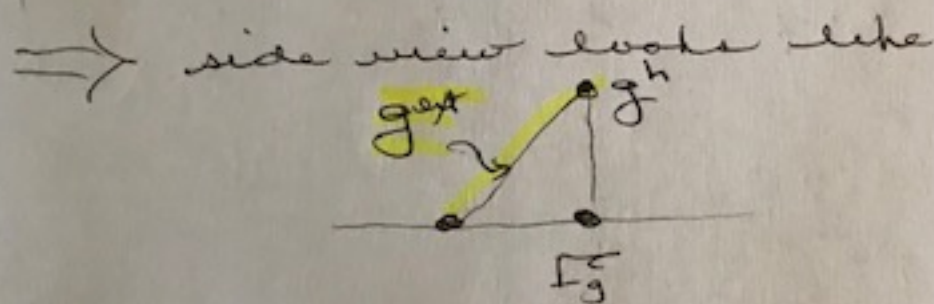 ⇒ side view looks like
g^ext
g^h
Γ_g